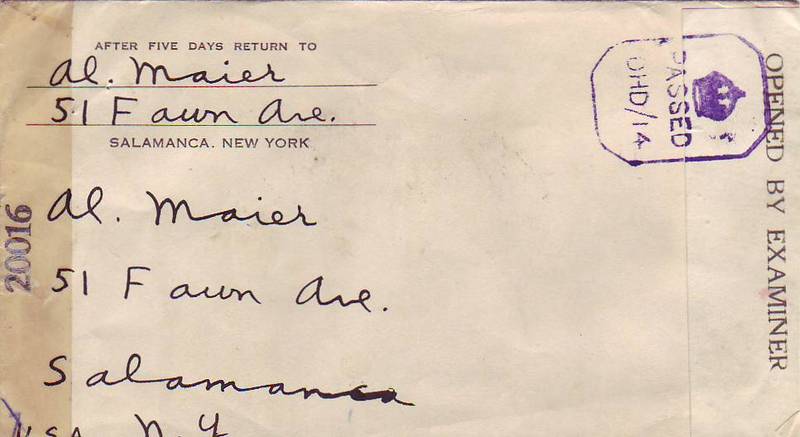 AFTER FIVE DAYS RETURN TO
Al. Maier
51 Fawn Ave.
SALAMANCA, NEW YORK
Al. Maier
51 Fawn Ave.
Salamanca
USA N.Y
20016
PASSED
DHD/14
OPENED BY EXAMINER